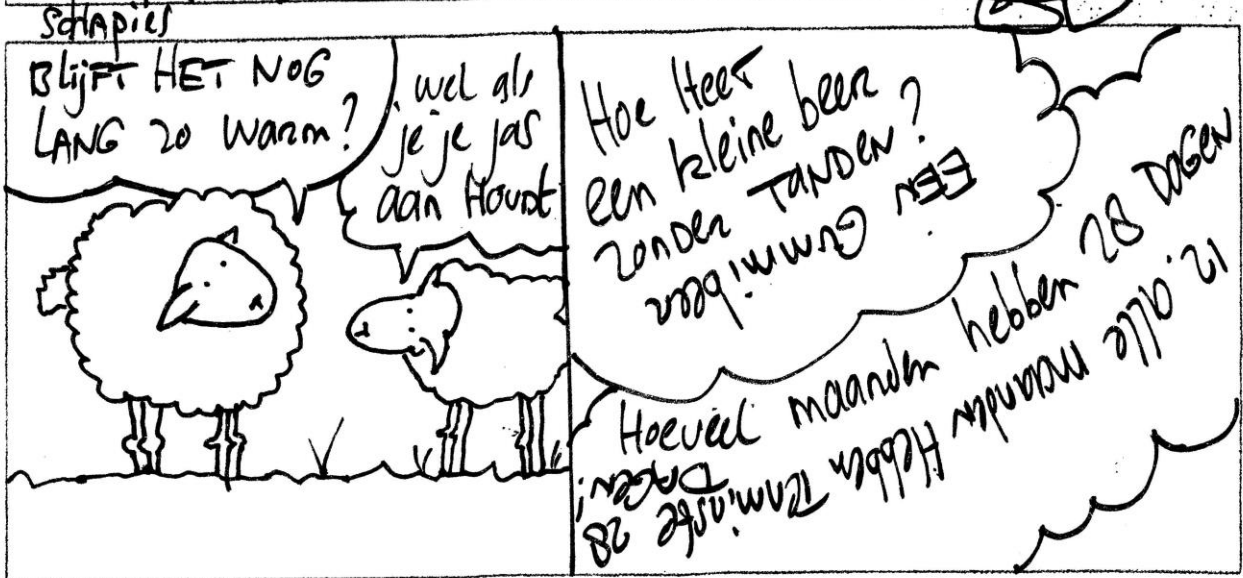 Schapies
Blijft HET NOG
LANG zo warm?
wel als
je je jas
aan Houdt
Hoe Heet
een kleine beer
zonder TANDEN?
EEN
Gummibeer
Hoeveel maanden hebben 28 DAGEN
12. alle maanden Hebben Tenminste 28
DAGEN!